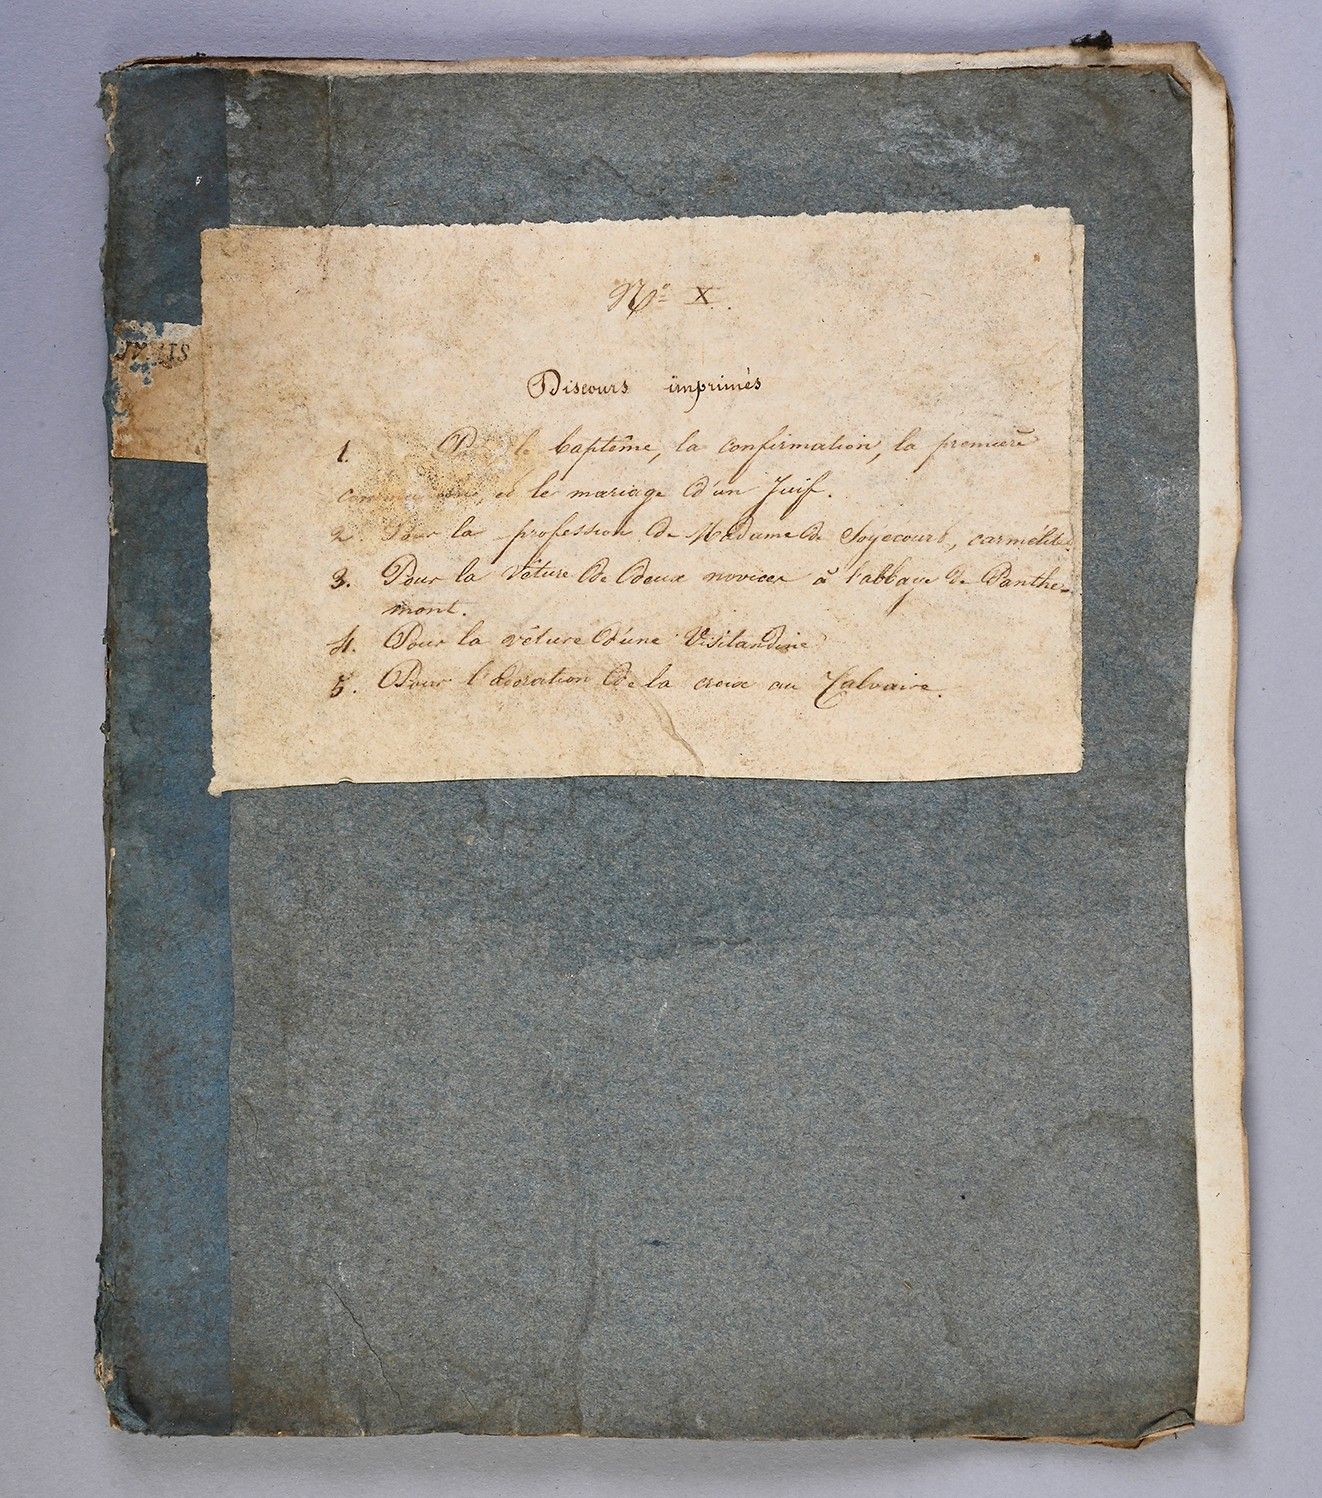 N.º X.
Discours imprimés
1. Pour le baptême, la confirmation, la première
communion, et le mariage d'un Juif.
2. Pour la profession de Madame de Soyecourt, carmélite.
3. Pour la Vêture de deux novices à l'abbaye de Panthe-
mont.
4. Pour la vêture d'une Visitandine
5. Pour l'adoration de la croix au Calvaire.